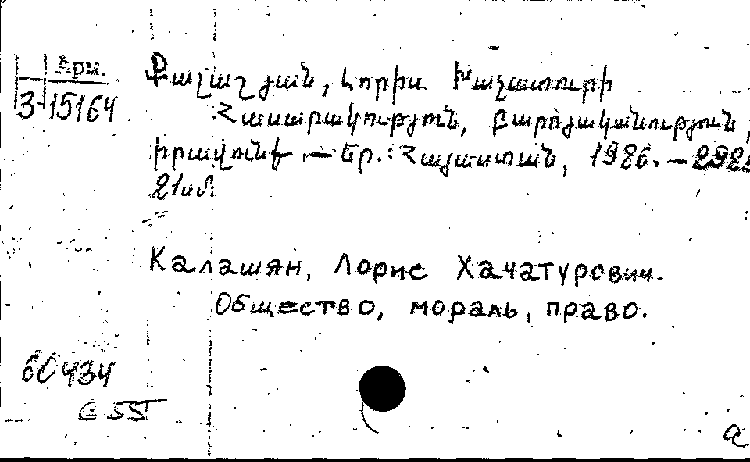 Երև.
3-15164
Քալաշյան, Լորիս Խաչատուրի
Հասարակություն, բարոյականություն,
իրավունք.— Եր.: Հայաստան, 1986.—292
21սմ.
Калашян, Лорис Хачатурович.
Общество, мораль, право.
60434
655
a